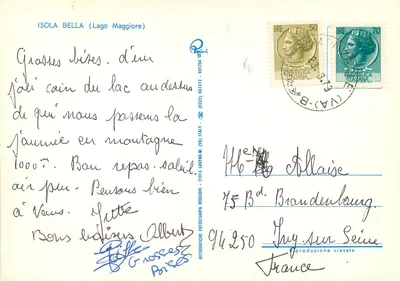 ISOLA BELLA (Lago Maggiore)
Grosses bises. d'un
joli coin du lac au dessus
de qui nous passons la
journée en montagne
1000 m. Bon repas. soleil.
air pur. Pensons bien
à Vous.
Bons baisers Albert
Grosses
Bises
50
70
Allaise
75 Bd. Brandenbourg
94250 Ivry sur Seine
France
riproduzione vietata